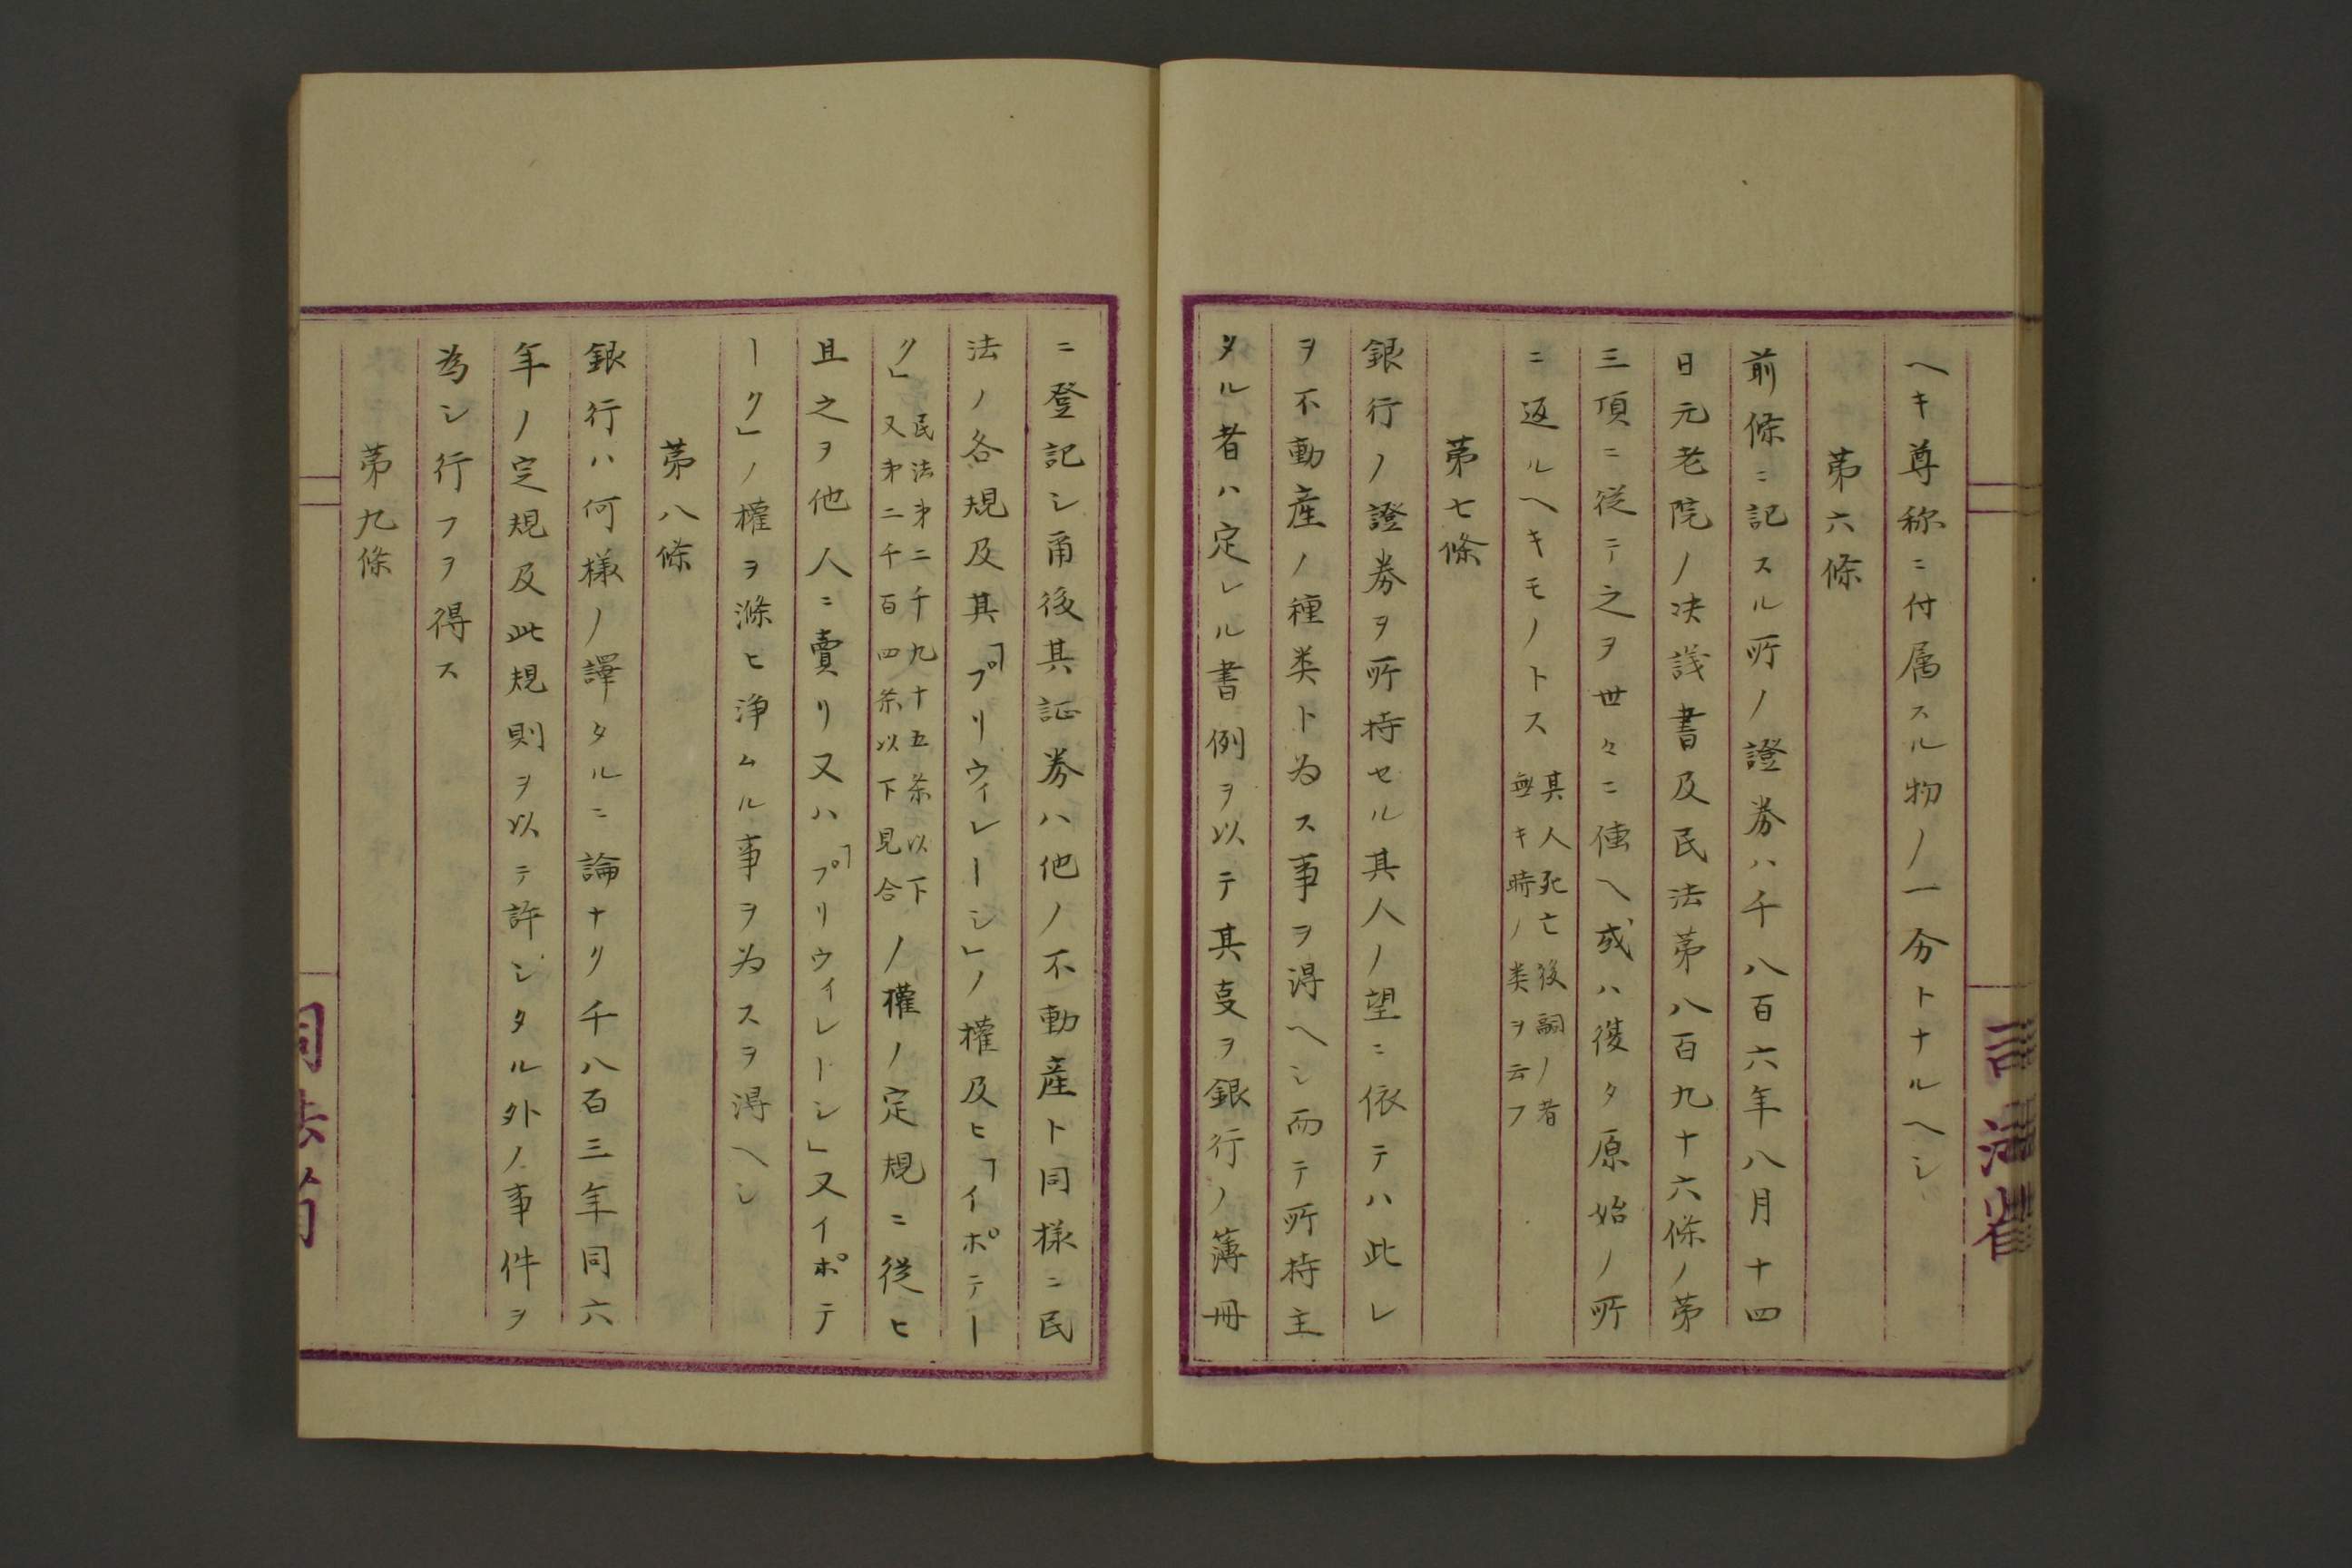 ヘキ尊称ニ付属スル物ノ一分トナルヘシ
第六條
前條ニ記スル所ノ證券ハ千八百六年八月十四
日元老院ノ决議書及民法第八百九十六條ノ第
三項ニ従テ之ヲ世々ニ傳ヘ或ハ復タ原始ノ所
ニ返ルヘキモノトス
其人死亡後嗣ノ者
無キ時ノ类ヲ云フ
第七條
銀行ノ證券ヲ所持セル其人ノ望ニ依テハ此レ
ヲ不動産ノ種类ト为ス事ヲ得ヘシ而テ所持主
タル者ハ定レル書例ヲ以テ其㕝ヲ銀行ノ薄冊
ニ登記シ甬後其証券ハ他ノ不動産ト同様ニ民
法ノ各規及其「プリウィレーシ」ノ權及ヒ「イポテー
ク」
民法才二千九十五条以下
又才二千百四条以下見合
ノ權ノ定規ニ従ヒ
且之ヲ他人ニ賣リ又ハ「プリウィレーシ」又イポテ
ーク」ノ權ヲ滌ヒ浄ムル事ヲ为スヲ得ヘシ
第八條
銀行ハ何様ノ譯タルニ論ナク千八百三年同六
年ノ定規及此規則ヲ以テ許シタル外ノ事件ヲ
為シ行フヲ得ス
第九條
司法省
司法省